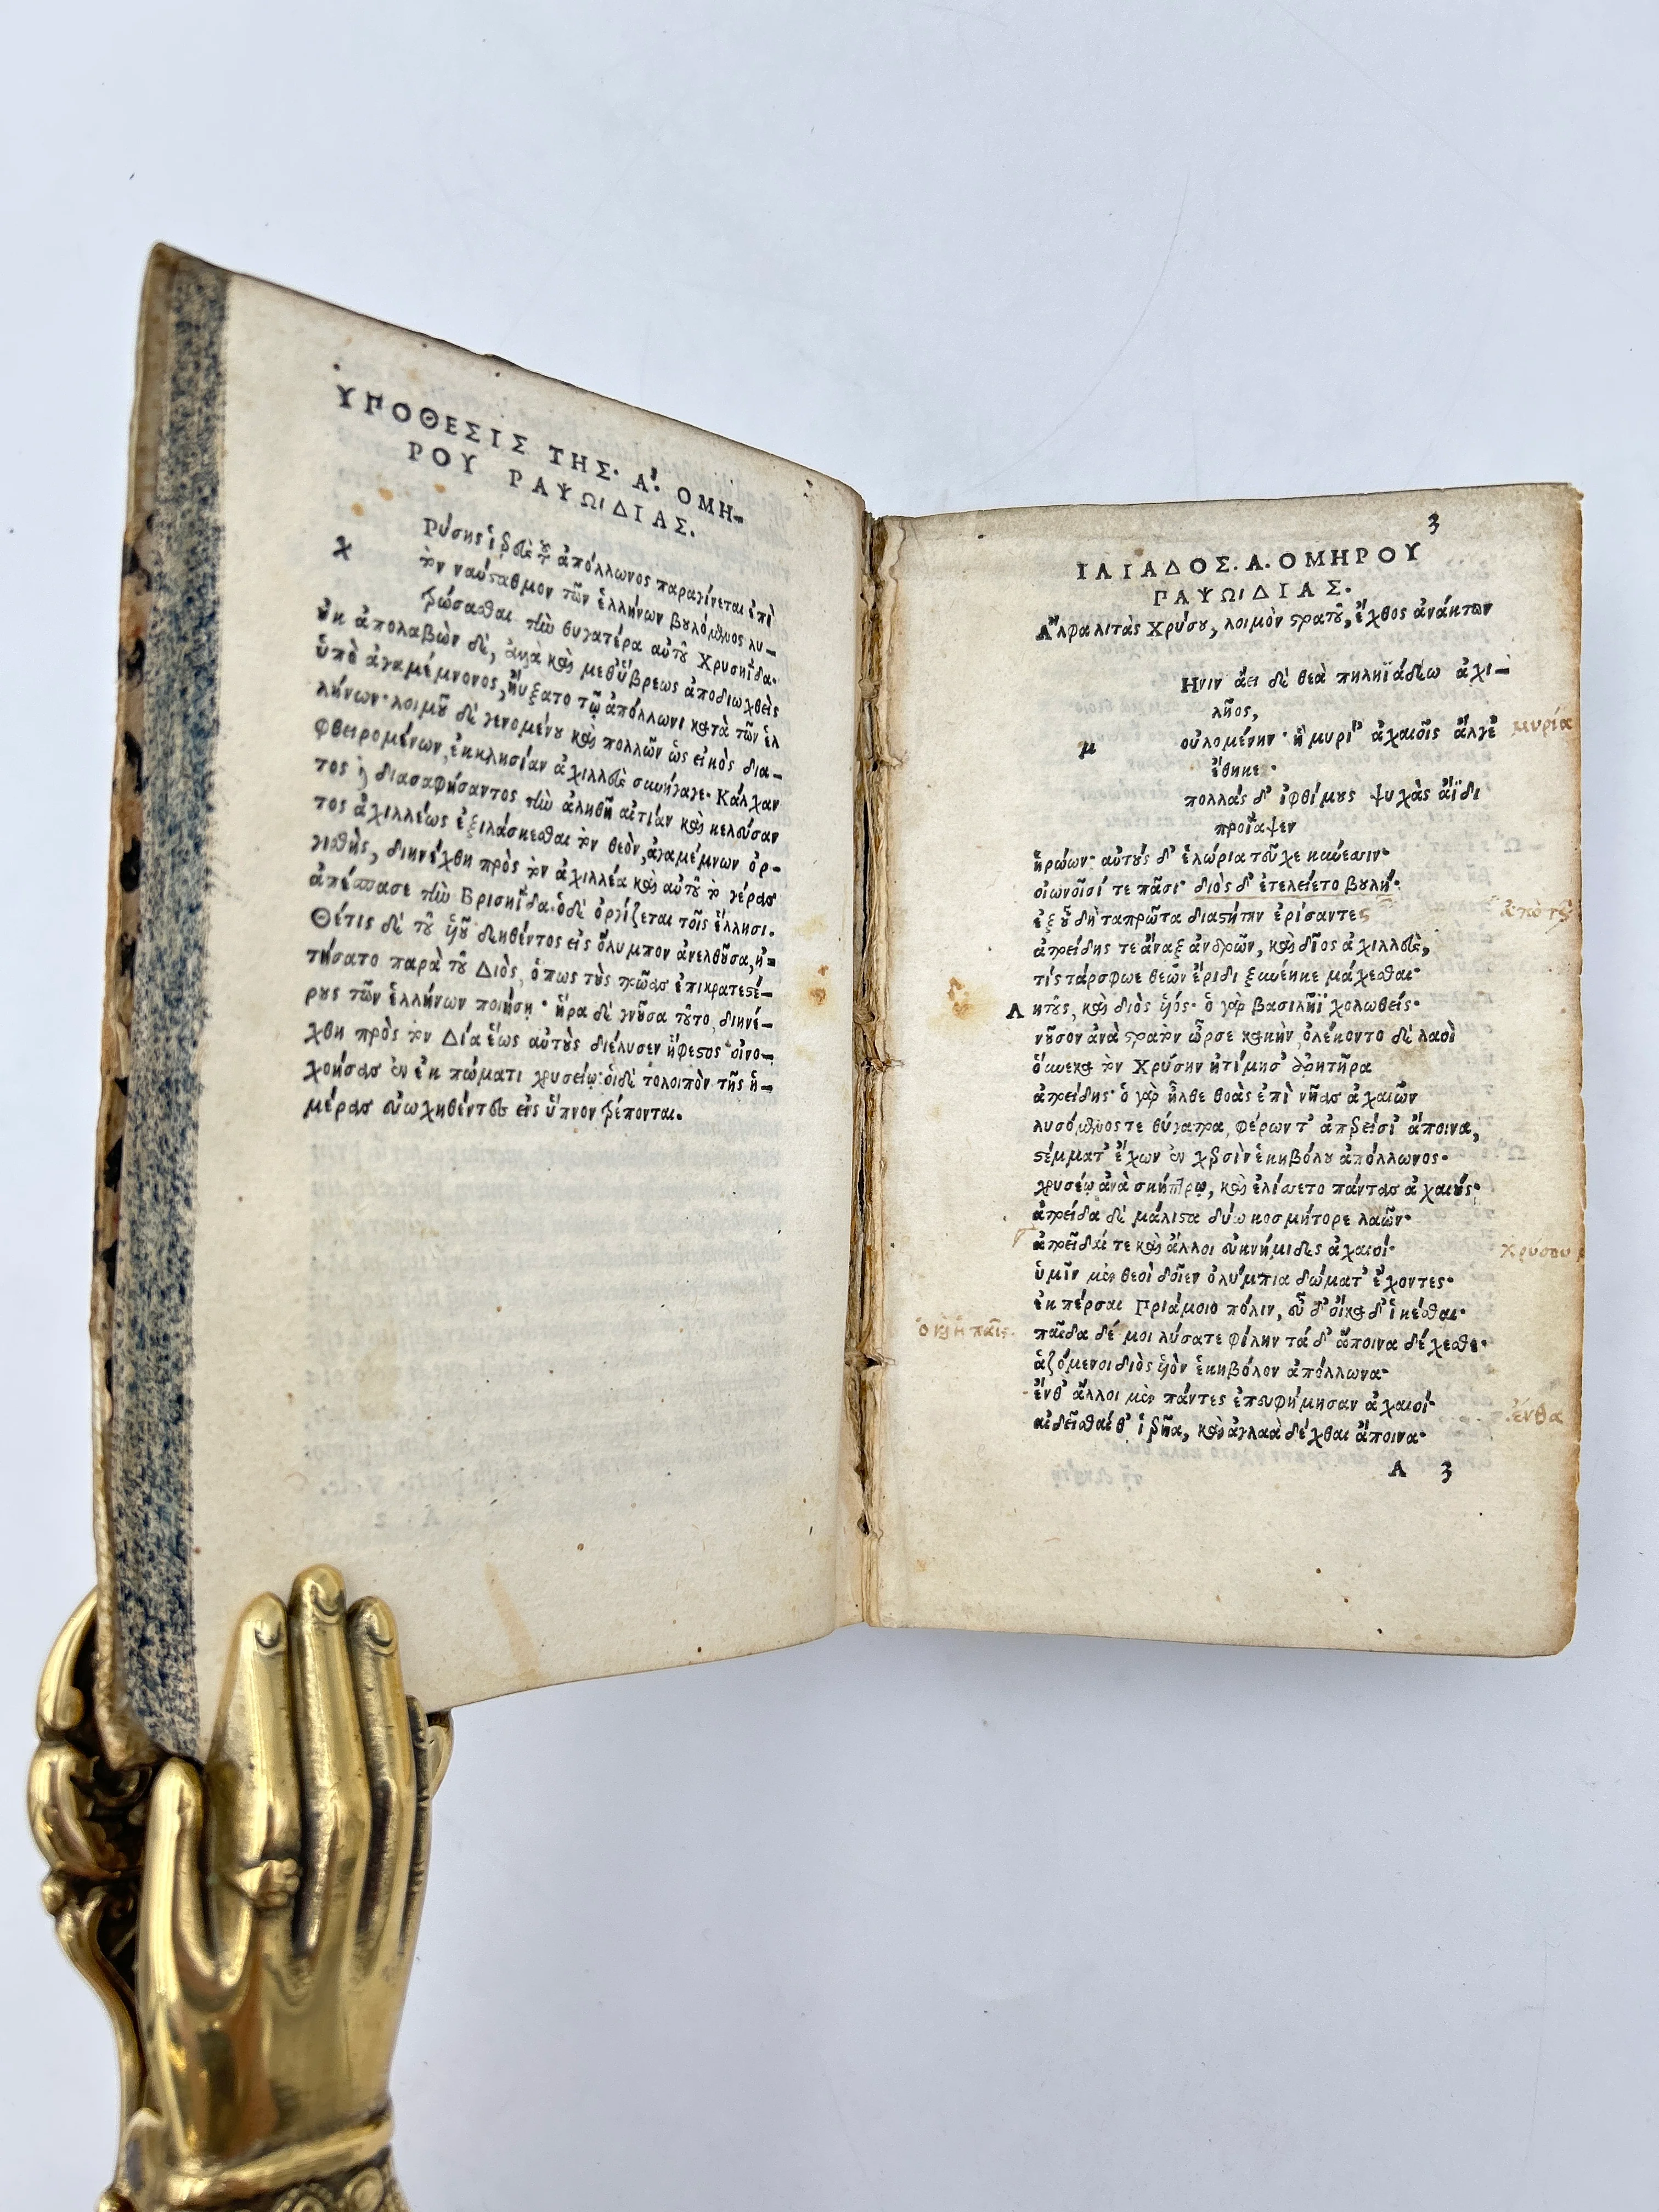 ΥΠΟΘΕΣΙΣ ΤΗΣ· Α'. ΟΜΗ-
ΡΟΥ ΡΑΨΩΙΔΙΑΣ.
χ Ρύσης ἱερεὺς τοῦ ἀπόλλωνος παραγίνεται ἐπὶ
τὸν ναύσταθμον τῶν ἑλλήνων βουλόμενος λυ-
τρώσασθαι τὴν θυγατέρα αὐτοῦ Χρυσηΐδα·
οὐκ ἀπολαβὼν δὲ, ἀλλὰ καὶ μεθ' ὕβρεως ἀποδιωχθεὶς
ὑπὸ ἀγαμέμνονος, ηὔξατο τῷ ἀπόλλωνι κατὰ τῶν ἑλ
λήνων· λοιμοῦ δὲ γενομένου καὶ πολλῶν ὡς εἰκὸς δια-
φθειρομένων, ἐκκλησίαν ἀχιλλεὺς συνήγαγε· Κάλχαν
τος διασαφήσαντος τὴν ἀληθῆ αἰτίαν καὶ κελεύσαν
τος ἀχιλλέως ἐξιλάσκεσθαι τὸν θεὸν, ἀγαμέμνων ὀρ-
γισθεὶς, διηνέχθη πρὸς τὸν ἀχιλλέα καὶ αὐτοῦ τὸ γέρας
ἀπέσπασε τὴν Βρισηΐδα· ὁ δὲ ὀργίζεται τοῖς ἕλλησι·
Θέτις δὲ τοῦ υἱοῦ δεηθέντος εἰς ὄλυμπον ἀνελθοῦσα, ᾐ-
τήσατο παρὰ τοῦ Διὸς, ὅπως τοὺς τρῶας ἐπικρατεστέ-
ρους τῶν ἑλλήνων ποιήσῃ· ἥρα δὲ γνοῦσα τοῦτο, διηνέ-
χθη πρὸς τὸν Δία ἕως αὐτοὺς διέλυσεν ἥφεστος οἰνο-
χοήσας ἐν ἐκπώματι χρυσείῳ· οἱ δὲ τολοιπὸν τῆς ἡ-
μέρας εὐωχηθέντες εἰς ὕπνον τρέπονται.
3
ΙΛΙΑΔΟΣ. Α. ΟΜΗΡΟΥ
ΡΑΨΩΙΔΙΑΣ.
Ἄλφα λιτὰς Χρύσου, λοιμὸν στρατοῦ, ἔχθος ἀνάκτων
Ηνιν ἄει δὲ θεὰ πηληϊάδεω ἀχι-
λῆος,
μ οὐλομένην· ἣ μυρί' ἀχαιοῖς ἄλγε μυρία
ἔθηκε·
πολλάς δ' ἰφθίμους ψυχὰς ἄϊδι
προΐαψεν
ἡρώων· αὐτοὺς δ' ἑλώρια τεῦχε κύνεσσιν·
οἰωνοῖσί τε πᾶσι· διὸς δ' ἐτελείετο βουλή·
ἐξ οὗ δὴ ταπρῶτα διαστήτην ἐρίσαντες
ἀτρείδης τε ἄναξ ἀνδρῶν, καὶ δῖος ἀχιλλεὺς,
τίς τάρ σφωε θεῶν ἔριδι ξυνέηκε μάχεσθαι·
Λητοῦς, καὶ διὸς υἱός· ὁ γὰρ βασιλῆϊ χολωθείς·
νοῦσον ἀνὰ στρατὸν ὦρσε κακὴν, ὀλέκοντο δὲ λαοὶ
οὕνεκα τὸν Χρύσην ἠτίμησ' ἀρητῆρα
ἀτρείδης· ὁ γὰρ ἦλθε θοὰς ἐπὶ νῆας ἀχαιῶν
λυσόμενος τε θύγατρα, φέρων τ' ἀπερείσι' ἄποινα,
στέμματ' ἔχων ἐν χερσὶν ἑκηβόλου ἀπόλλωνος·
χρυσέῳ ἀνὰ σκήπτρῳ, καὶ ἐλίσσετο πάντας ἀχαιούς·
ἀτρείδα δὲ μάλιστα δύω κοσμήτορε λαῶν·
ἀτρεῖδαί τε καὶ ἄλλοι ἐϋκνήμιδες ἀχαιοί·
ὑμῖν μὲν θεοὶ δοῖεν ὀλύμπια δώματ' ἔχοντες·
ἐκπέρσαι Πριάμοιο πόλιν, εὖ δ' οἴκαδ' ἱκέσθαι·
παῖδα δέ μοι λύσατε φίλην τά δ' ἄποινα δέχεσθε·
ἁζόμενοι διὸς υἱὸν ἑκηβόλον ἀπόλλωνα·
ἔνθ' ἄλλοι μὲν πάντες ἐπευφήμησαν ἀχαιοί· ἔνθα
αἰδεῖσθαί θ' ἱερῆα, καὶ ἀγλαὰ δέχθαι ἄποινα·
Α 3